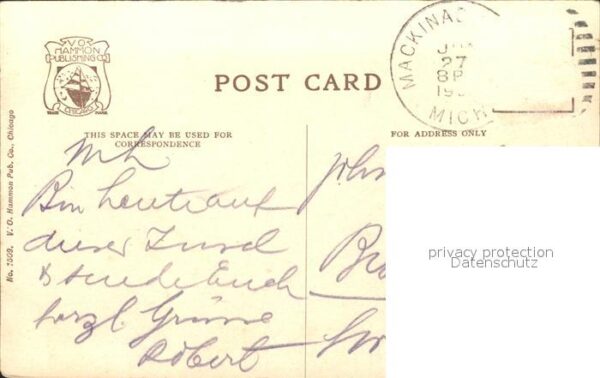 V.O.
HAMMON
PUBLISHING CO.
CHICAGO
TRADE MARK
POST CARD
MACKINAC
27
8 P
19
MICH
THIS SPACE MAY BE USED FOR
CORRESPONDENCE
FOR ADDRESS ONLY
No. 1509. V. O. Hammon Pub. Co., Chicago
Bin heute auf
dieser Insel
& sende Euch
herzl. Grüsse
Robert
John
privacy protection
Datenschutz